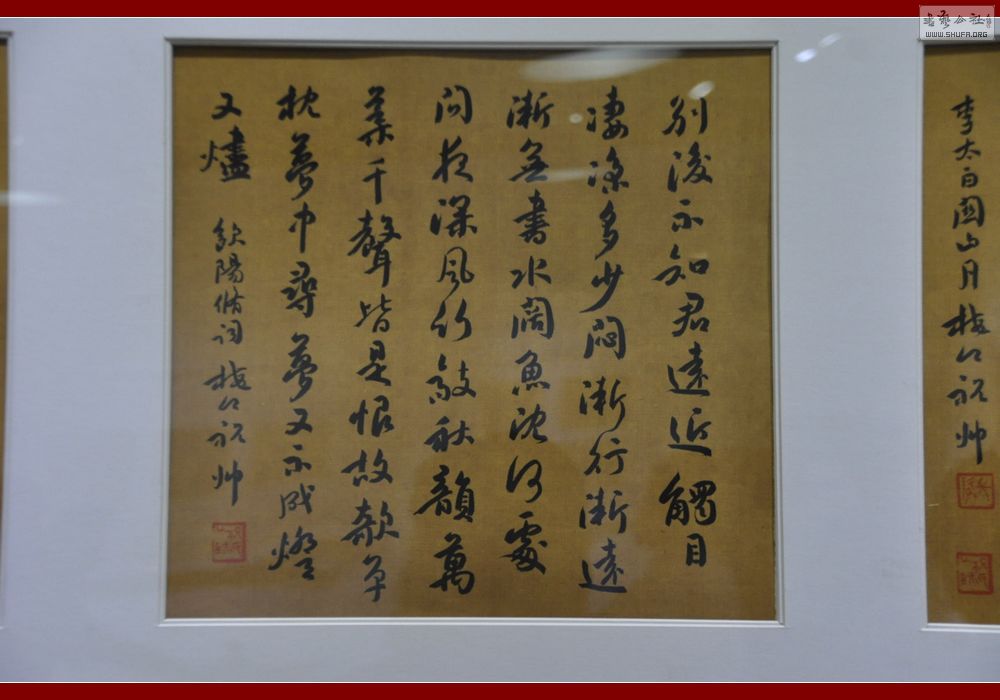 别後不知君遠近觸目
凄涼多少悶漸行漸遠
漸無書水闊魚沈何處
問夜深風竹敲秋韻萬
葉千聲皆是恨故欹單
枕夢中尋夢又不成燈
又燼
歐陽脩詞 祝帅
李太白関山月 祝帅
書藝公社
WWW.SHUFA.ORG